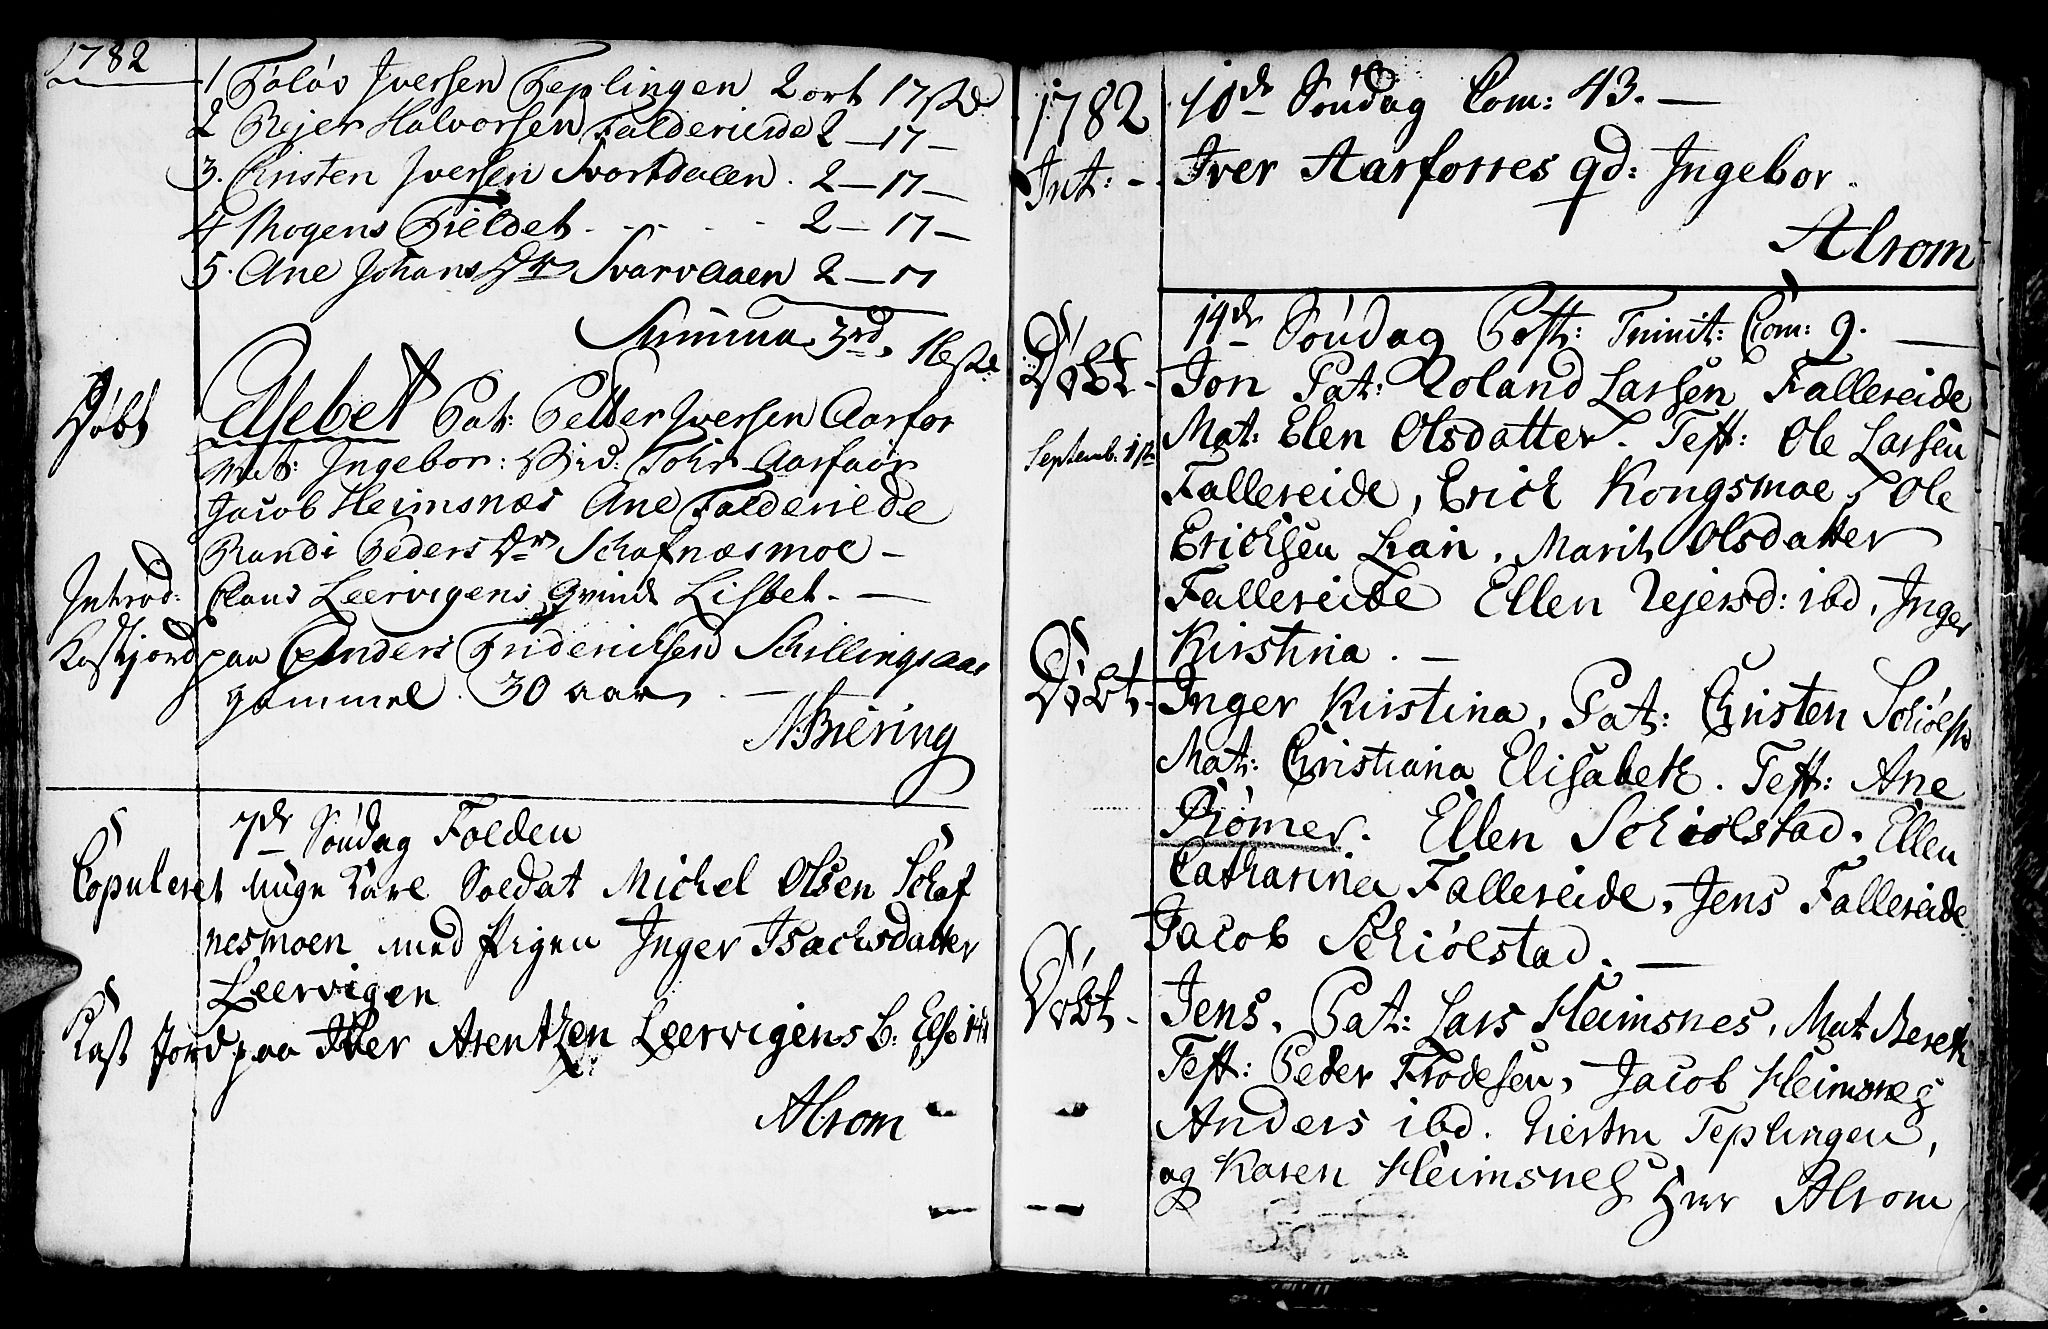 1782
1 Foløs Iversen Teplingen 2 ort 17 sk
2 Rejer Halvorsen Falderiede 2 — 17 —
3. Christen Iversen Svortdalen. 2 — 17 —
4 Mogens Fieldet - - - - 2 — 17 —
5. Ane Johans Dtr Svarvaaen 2 — 17
Summa 3 rd, 16 sk
Døbt Elsebet Pat: Petter Iversen Aarfor
mat: Ingebor: Aarfaar
Jacob Heimsnæs Ane Falderiede
Randi Peders Dtr Schafnæsmoe —
Introd: Claus Leervigens qvinde Lisbet. —
Kast jord paa Anders Friderichsen Schillingsaas
gammel. 30 aar. —
NBiering
7de Søndag Folden
Copuleret unge Karl Soldat Michel Olsen Schaf
nesmoen med Pigen Inger Isachsdatter
Leervigen
Kast Jord paa Iver Arentzen Leervigens b: Else
Alrom
1782 10de Søndag Com: 43. —
Int: - Iver Aarforres qd: Ingebor.
Alrom
14de Søndag Post: Trinit: Com: 9. —
Døbt - Jon Pat: Roland Larsen Fallereide
Septemb: 1ste Mat: Elen Olsdatter. Test: Ole Larsen
Fallereide, Erich Kongsmoe, Ole
Erichsen Lian, Marit Olsdatter
Fallereide Ellen Rejersd: ibd, Inger
Kirstina. —
Døbt - Inger Kirstina, Pat: Christen Schiølst
Mat: Christiana Elisabeth. Test: Ane
Rømer. Ellen Schiølstad, Ellen
Catharina Fallereide, Jens Fallereide
Jacob Schiølstad. —
Døbt - Jens, Pat: Lars Heimsnes, Mat Bereth
Test: Peder Frodesen, Jacob Heimsnes
Anders ibd. Teplingen,
og Karen Heimsnes Herr Alrom